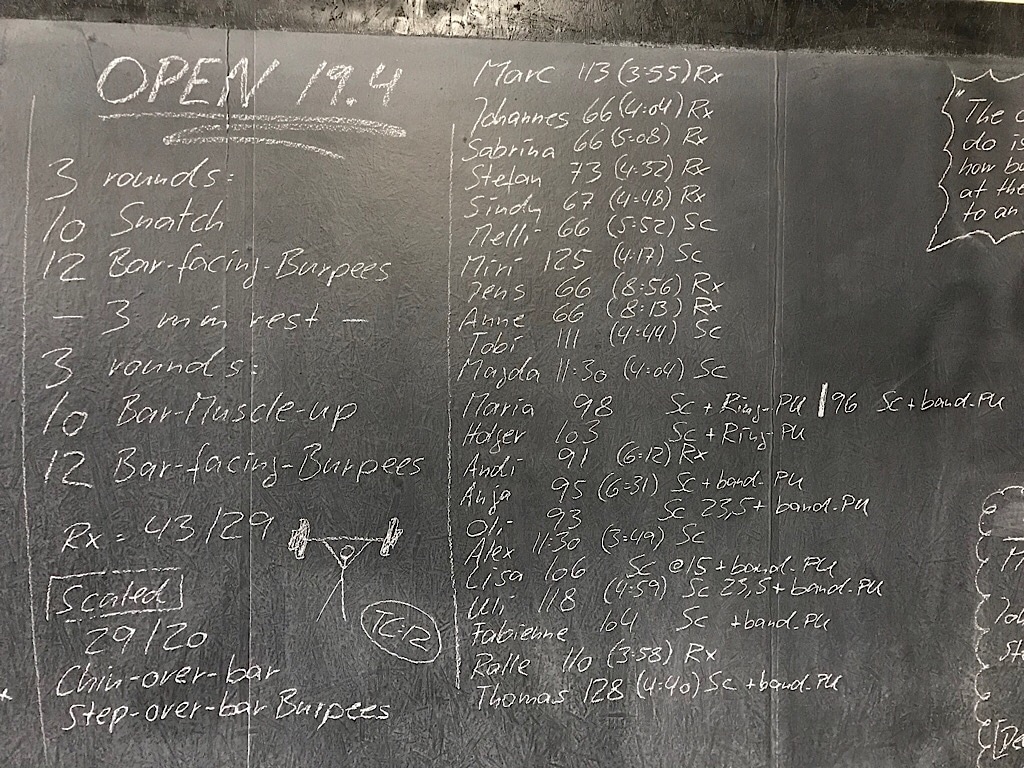 OPEN 19.4
3 rounds:
10 Snatch
12 Bar-facing-Burpees
- 3 min rest -
3 rounds:
10 Bar-Muscle-up
12 Bar-facing-Burpees
Rx = 43/29
Scaled
29/20
Chin-over-bar
Step-over-bar Burpees
TC:12
Marc 113 (3:55) Rx
Johannes 66 (4:04) Rx
Sabrina 66 (5:08) Rx
Stefan 73 (4:32) Rx
Sindy 67 (4:48) Rx
Melli 66 (5:52) Sc
Miri 125 (4:17) Sc
Jens 66 (8:56) Rx
Anne 66 (8:13) Rx
Tobi 111 (4:44) Sc
Magda 11:30 (4:04) Sc
Maria 98 Sc + Ring-PU | 96 Sc + band-PU
Holger 103 Sc + Ring-PU
Andi 91 (6:12) Rx
Anja 95 (6:31) Sc + band-PU
Oli 93 Sc 23,5 + band-PU
Alex 11:30 (3:49) Sc
Lisa 106 Sc @15 + band-PU
Uli 118 (4:59) Sc 23,5 + band-PU
Fabienne 104 Sc + band-PU
Ralle 110 (3:58) Rx
Thomas 128 (4:40) Sc + band-PU
"The
do is
how
at the
to an